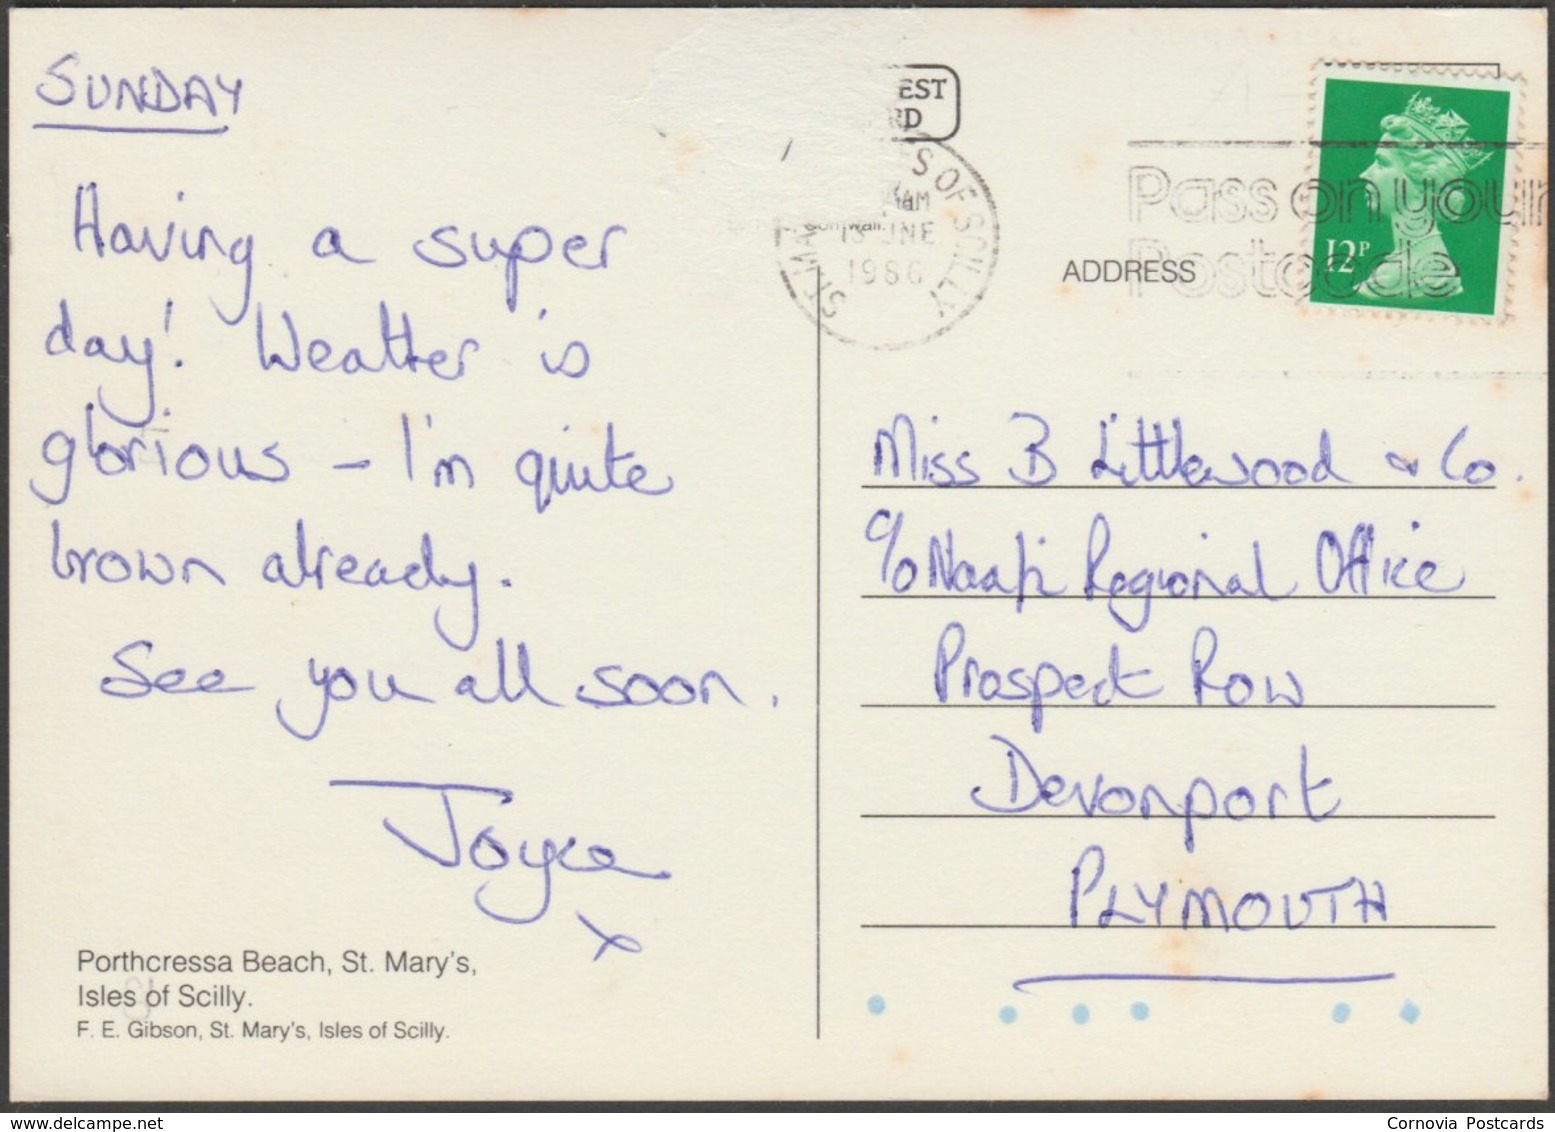 SUNDAY
Having a super
day! Weather is
glorious – I'm quite
brown already.
See you all soon.
Joyce
x
Porthcressa Beach, St. Mary's,
Isles of Scilly.
F. E. Gibson, St. Mary's, Isles of Scilly.
EST
RD
S OF SCILLY
AM
JNE
1986
ST. MA
Pass on your
Postcode
12P
ADDRESS
Miss B Littlewood & Co.
c/o Naafi Regional Office
Prospect Row
Devonport
PLYMOUTH
Cornovia Postcards